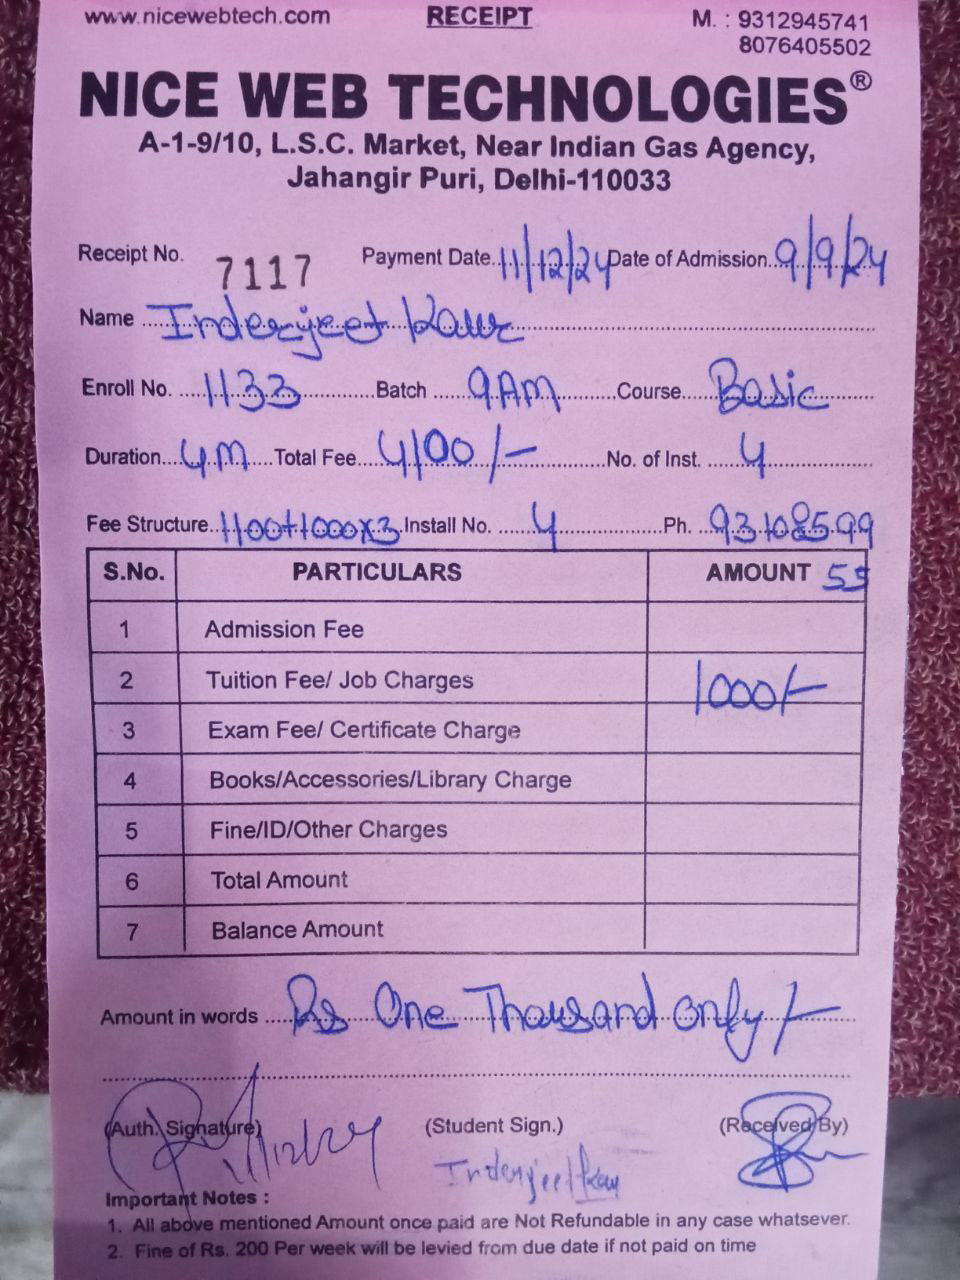 www.nicewebtech.com RECEIPT M. : 9312945741
8076405502
NICE WEB TECHNOLOGIES®
A-1-9/10, L.S.C. Market, Near Indian Gas Agency,
Jahangir Puri, Delhi-110033
Receipt No. 7117 Payment Date 11/12/24 Date of Admission 9/9/24
Name Inderjeet Kaur
Enroll No. 1133 Batch 9AM Course Basic
Duration 4M Total Fee 4100/- No. of Inst. 4
Fee Structure 1100+1000x3 Install No. 4 Ph. 93108599
S.No. PARTICULARS AMOUNT 55
1 Admission Fee
2 Tuition Fee/ Job Charges 1000/-
3 Exam Fee/ Certificate Charge
4 Books/Accessories/Library Charge
5 Fine/ID/Other Charges
6 Total Amount
7 Balance Amount
Amount in words Rs One Thousand only/-
(Auth. Signature) (Student Sign.) (Received By)
Inderjeet Kaur
Important Notes :
1. All above mentioned Amount once paid are Not Refundable in any case whatsever.
2. Fine of Rs. 200 Per week will be levied from due date if not paid on time